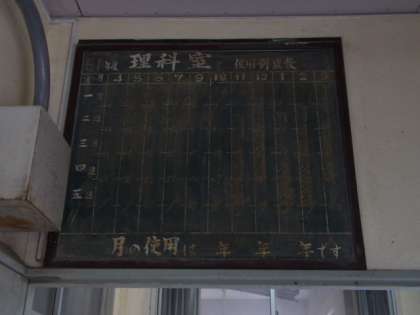 年度 理科室 使用割当表
月 4 5 6 7 8 9 10 11 12 1 2 3
一
二
三
四
五
月の使用は 年 年 年です